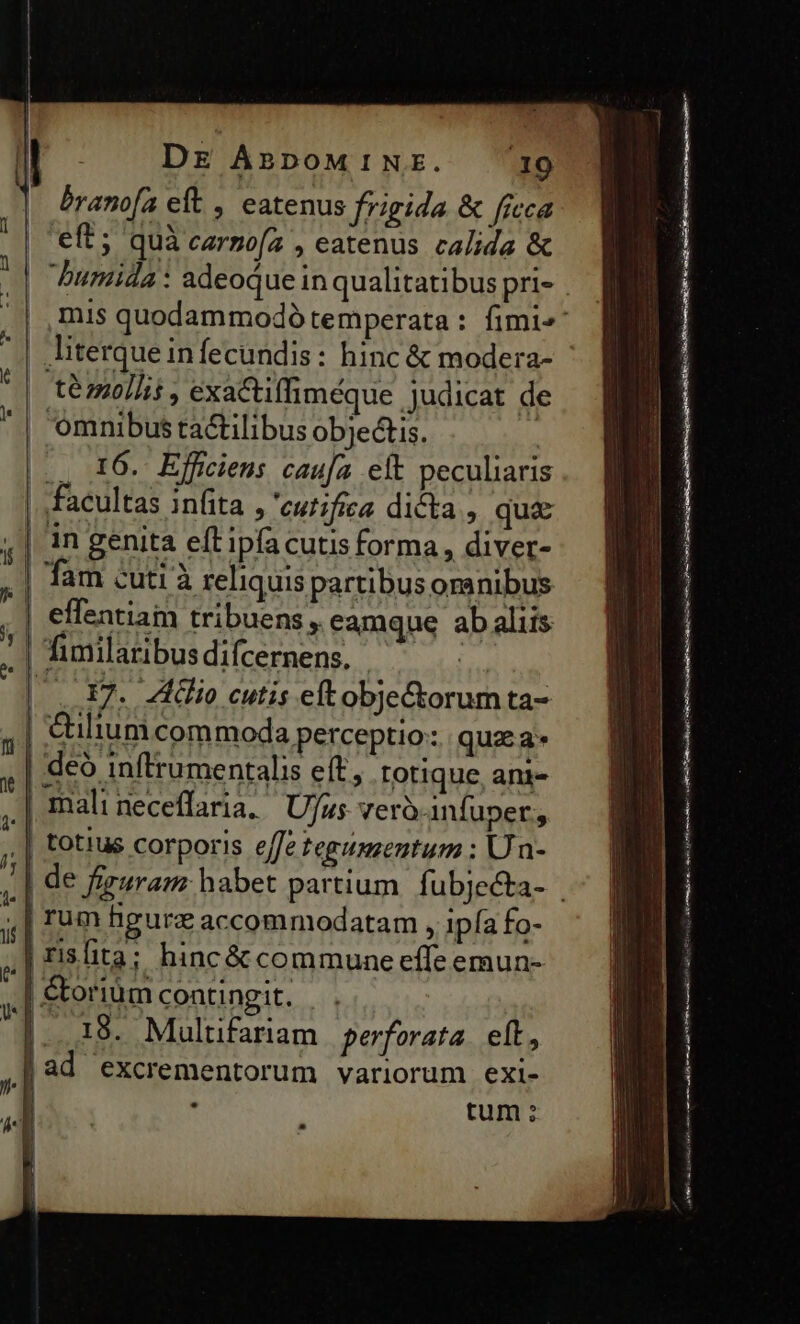 DE ABDOMINE. 19
branoſa eſt , eatenus frigida & ſicca
eſt; quà carnoſa , eatenus calida &
humida : adeoque in qualitatibus pri-
mis quodammodò temperata : ſimi-
literque in ſecundis : hinc & modera-
tè mollis , exactiſſiméque judicat de
omnibus tactilibus objectis.
16. Efficiens cauſa eſt peculiaris
facultas inſita , cutifica dicta , quæ
in genita eſt ipſa cutis forma , diver-
ſam cuti à reliquis partibus omnibus
eſſentiam tribuens , eamque ab aliis
ſimilaribus diſcernens.
17. Actio cutis eſt objectorum ta-
ctilium commoda perceptio : quæ a-
deò inſtrumentalis eſt , totique ani-
mali neceſſaria. Uſus verò inſuper ,
totius corporis eſſe tegumentum : Un-
de figuram habet partium ſubjecta-
rum figuræ accommodatam , ipſa fo-
ris ſita ; hinc & commune eſſe emun-
ctorium contingit.
18. Multifariam perforata eſt ,
ad excrementorum variorum exi-
tum :